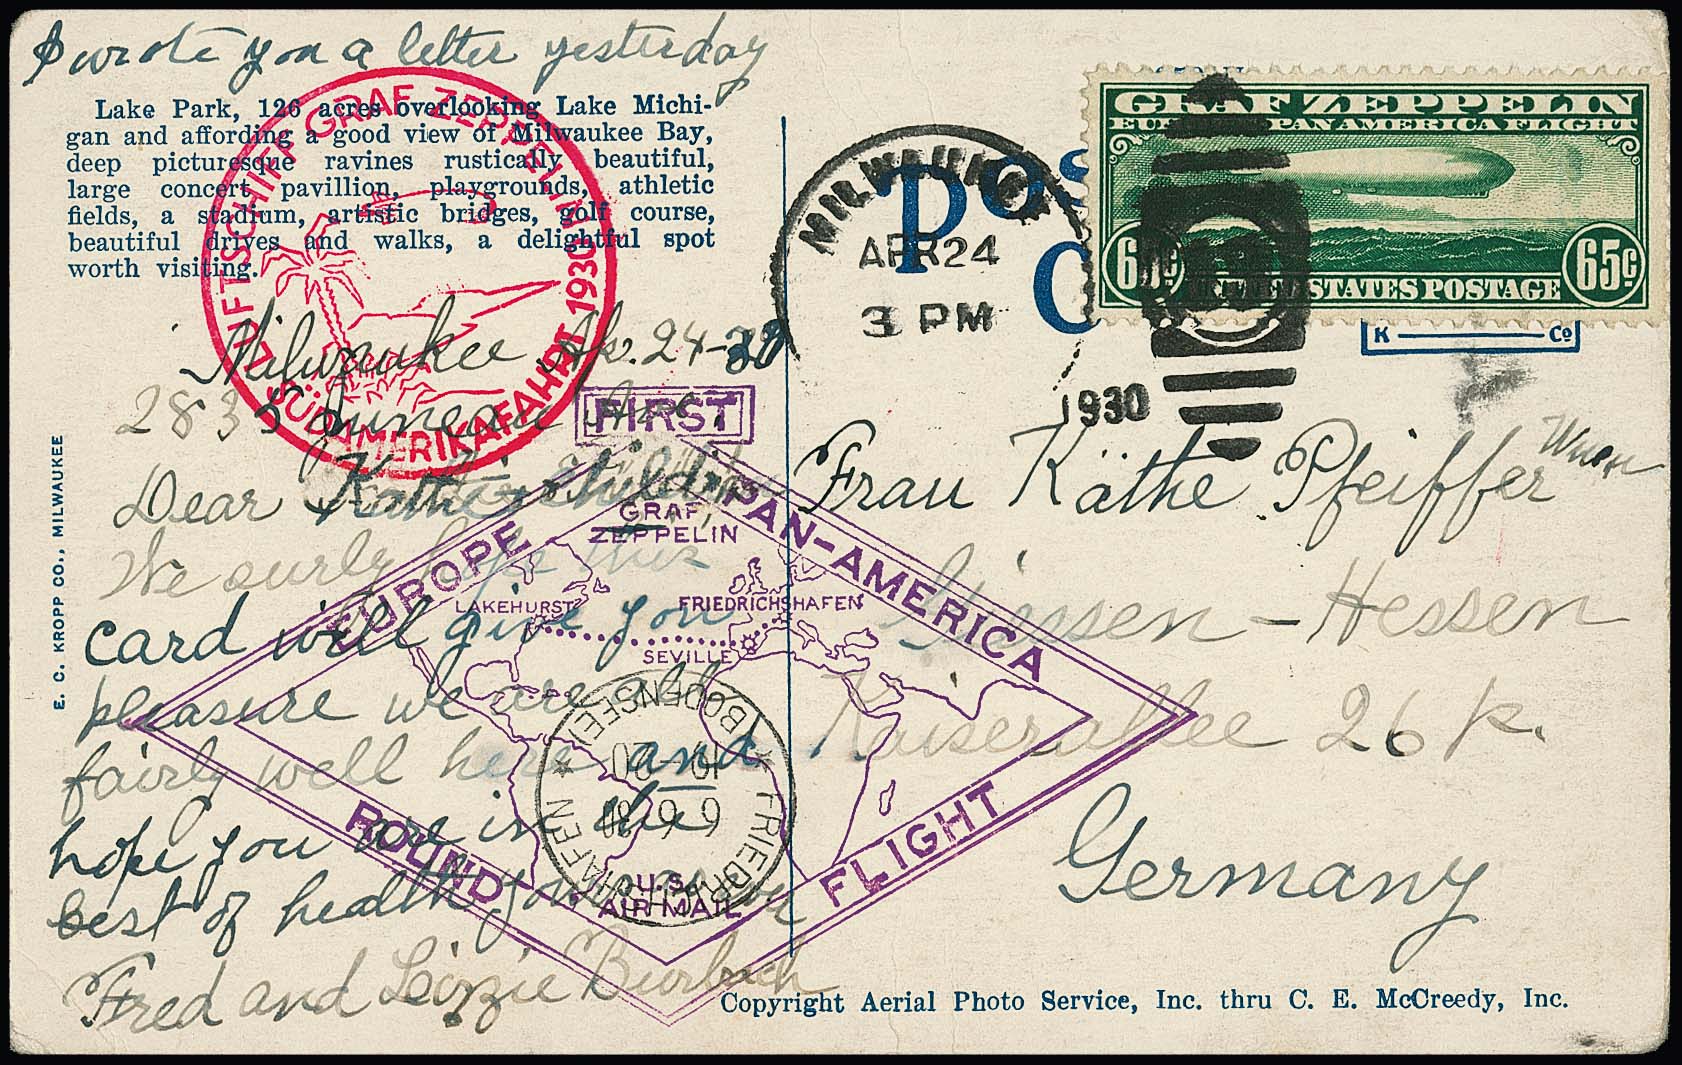 I wrote you a letter yesterday
Lake Park, 126 acres overlooking Lake Michi-
gan and affording a good view of Milwaukee Bay,
deep picturesque ravines rustically beautiful,
large concert pavillion, playgrounds, athletic
fields, a stadium, artistic bridges, golf course,
beautiful drives and walks, a delightful spot
worth visiting.
LUFTSCHIFF GRAF ZEPPELIN
SÜDAMERIKAFAHRT 1930
Milwaukee, Ap. 24-30
2835 Juneau Ave.
Dear
We surly hope this
card will give you
pleasure we are all
fairly well here and
hope you are in the
best of health
Fred and Lizzie
E. C. KROPP CO., MILWAUKEE
MILWAUKEE
APR 24
3 PM
1930
POS
C
GRAF ZEPPELIN
EUROPE PAN AMERICA FLIGHT
65¢ 65¢
UNITED STATES POSTAGE
K Co
FIRST
EUROPE PAN-AMERICA
ROUND FLIGHT
GRAF
ZEPPELIN
LAKEHURST FRIEDRICHSHAFEN
SEVILLE
U.S.
AIR MAIL
FRIEDRICHSHAFEN
(BODENSEE)
Frau Käthe Pfeiffer
Giessen - Hessen
Kaiserallee 26 p.
Germany
Copyright Aerial Photo Service, Inc. thru C. E. McCreedy, Inc.